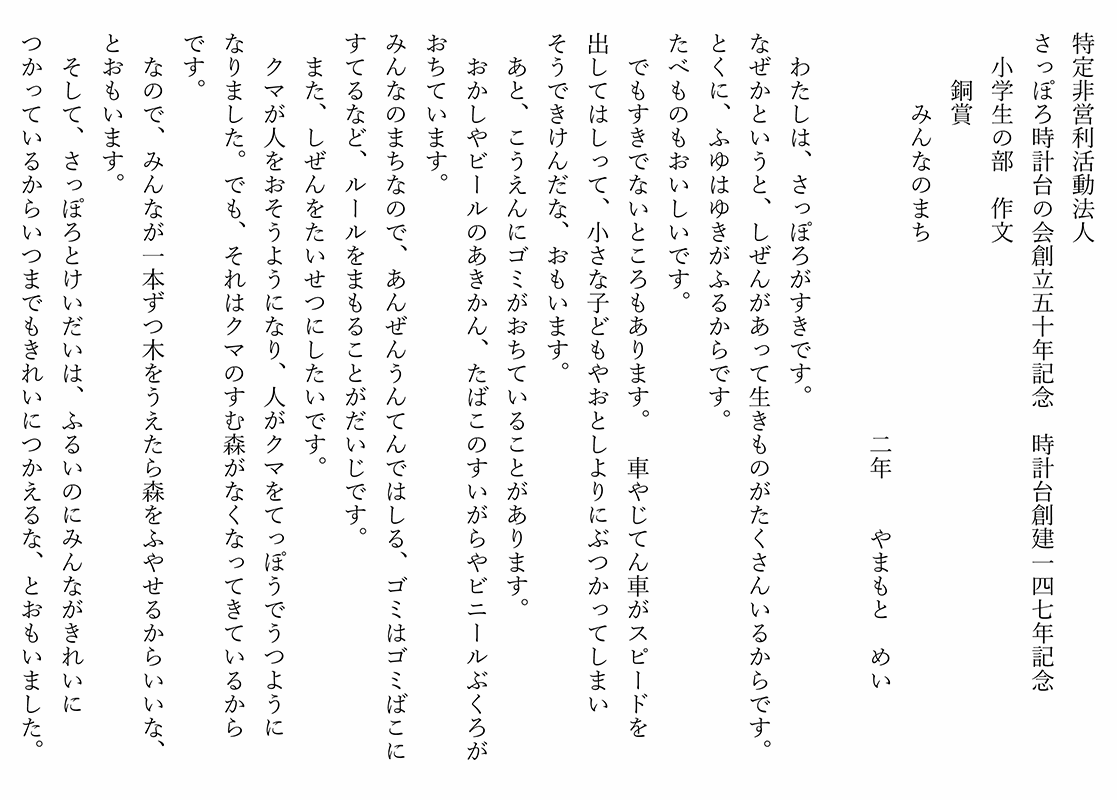 特定非営利活動法人
さっぽろ時計台の会創立五十年記念　時計台創建一四七年記念
小学生の部　作文
銅賞
みんなのまち
二年　　やまもと　めい
わたしは、さっぽろがすきです。
なぜかというと、しぜんがあって生きものがたくさんいるからです。
とくに、ふゆはゆきがふるからです。
たべものもおいしいです。
でもすきでないところもあります。　車やじてん車がスピードを
出してはしって、小さな子どもやおとしよりにぶつかってしまい
そうできけんだな、おもいます。
あと、こうえんにゴミがおちていることがあります。
おかしやビールのあきかん、たばこのすいがらやビニールぶくろが
おちています。
みんなのまちなので、あんぜんうんてんではしる、ゴミはゴミばこに
すてるなど、ルールをまもることがだいじです。
また、しぜんをたいせつにしたいです。
クマが人をおそうようになり、人がクマをてっぽうでうつように
なりました。でも、それはクマのすむ森がなくなってきているから
です。
なので、みんなが一本ずつ木をうえたら森をふやせるからいいな、
とおもいます。
そして、さっぽろとけいだいは、ふるいのにみんながきれいに
つかっているからいつまでもきれいにつかえるな、とおもいました。